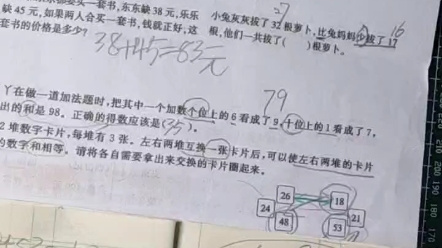 买一套书,东东缺38元,乐乐
缺45元,如果两人合买一套书,钱就正好,这
套书的价格是多少?
38+45=83元
27
小兔灰灰拔了32根萝卜,比兔妈妈少拔了17
16
根,他们一共拔了( )根萝卜。
79
丫在做一道加法题时,把其中一个加数个位上的6看成了9,十位上的1看成了7,
出的和是98。正确的得数应该是(35)。
2堆数字卡片,每堆有3张。左右两堆互换一张卡片后,可以使左右两堆的卡片
的数字和相等。请将各自需要拿出来交换的卡片圈起来。
26
18
24
21
48
53